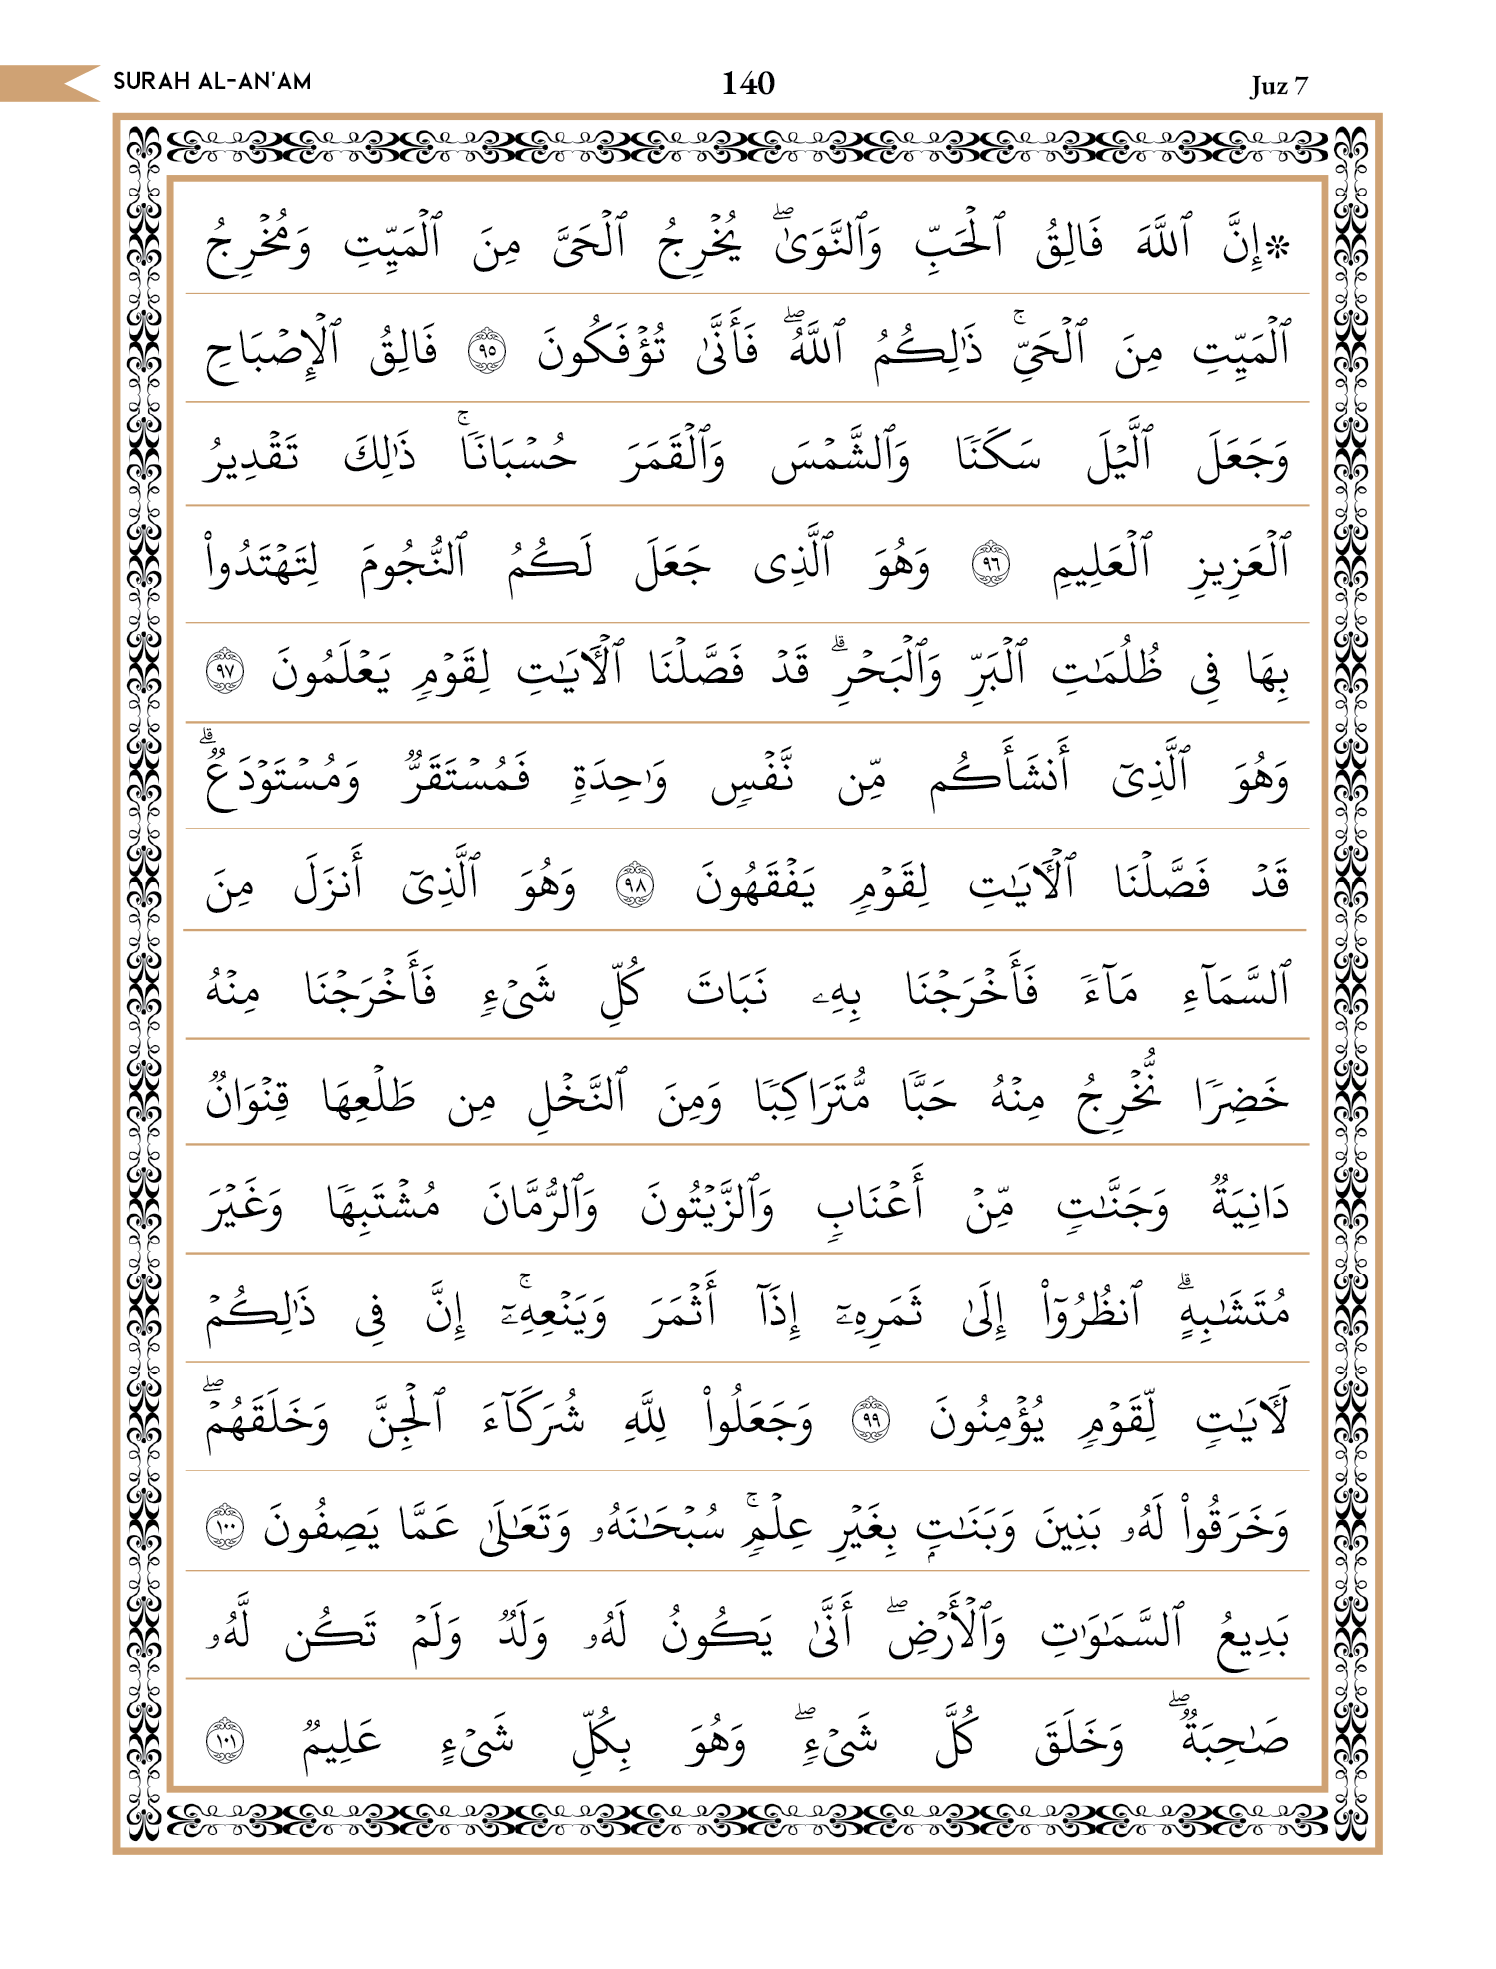 SURAH AL-AN'AM 140 Juz 7
۞إِنَّ ٱللَّهَ فَالِقُ ٱلْحَبِّ وَٱلنَّوَىٰۖ يُخْرِجُ ٱلْحَىَّ مِنَ ٱلْمَيِّتِ وَمُخْرِجُ
ٱلْمَيِّتِ مِنَ ٱلْحَىِّۚ ذَٰلِكُمُ ٱللَّهُۖ فَأَنَّىٰ تُؤْفَكُونَ ٩٥ فَالِقُ ٱلْإِصْبَاحِ
وَجَعَلَ ٱلَّيْلَ سَكَنًا وَٱلشَّمْسَ وَٱلْقَمَرَ حُسْبَانًاۚ ذَٰلِكَ تَقْدِيرُ
ٱلْعَزِيزِ ٱلْعَلِيمِ ٩٦ وَهُوَ ٱلَّذِى جَعَلَ لَكُمُ ٱلنُّجُومَ لِتَهْتَدُوا۟
بِهَا فِى ظُلُمَٰتِ ٱلْبَرِّ وَٱلْبَحْرِۗ قَدْ فَصَّلْنَا ٱلْـَٔايَٰتِ لِقَوْمٍ يَعْلَمُونَ ٩٧
وَهُوَ ٱلَّذِىٓ أَنشَأَكُم مِّن نَّفْسٍ وَٰحِدَةٍ فَمُسْتَقَرٌّ وَمُسْتَوْدَعٌۗ
قَدْ فَصَّلْنَا ٱلْـَٔايَٰتِ لِقَوْمٍ يَفْقَهُونَ ٩٨ وَهُوَ ٱلَّذِىٓ أَنزَلَ مِنَ
ٱلسَّمَآءِ مَآءً فَأَخْرَجْنَا بِهِۦ نَبَاتَ كُلِّ شَىْءٍ فَأَخْرَجْنَا مِنْهُ
خَضِرًا نُّخْرِجُ مِنْهُ حَبًّا مُّتَرَاكِبًا وَمِنَ ٱلنَّخْلِ مِن طَلْعِهَا قِنْوَانٌ
دَانِيَةٌ وَجَنَّٰتٍ مِّنْ أَعْنَابٍ وَٱلزَّيْتُونَ وَٱلرُّمَّانَ مُشْتَبِهًا وَغَيْرَ
مُتَشَٰبِهٍۗ ٱنظُرُوٓا۟ إِلَىٰ ثَمَرِهِۦٓ إِذَآ أَثْمَرَ وَيَنْعِهِۦٓۚ إِنَّ فِى ذَٰلِكُمْ
لَـَٔايَٰتٍ لِّقَوْمٍ يُؤْمِنُونَ ٩٩ وَجَعَلُوا۟ لِلَّهِ شُرَكَآءَ ٱلْجِنَّ وَخَلَقَهُمْۖ
وَخَرَقُوا۟ لَهُۥ بَنِينَ وَبَنَٰتٍۭ بِغَيْرِ عِلْمٍۚ سُبْحَٰنَهُۥ وَتَعَٰلَىٰ عَمَّا يَصِفُونَ ١٠٠
بَدِيعُ ٱلسَّمَٰوَٰتِ وَٱلْأَرْضِۖ أَنَّىٰ يَكُونُ لَهُۥ وَلَدٌ وَلَمْ تَكُن لَّهُۥ
صَٰحِبَةٌۖ وَخَلَقَ كُلَّ شَىْءٍۖ وَهُوَ بِكُلِّ شَىْءٍ عَلِيمٌ ١٠١